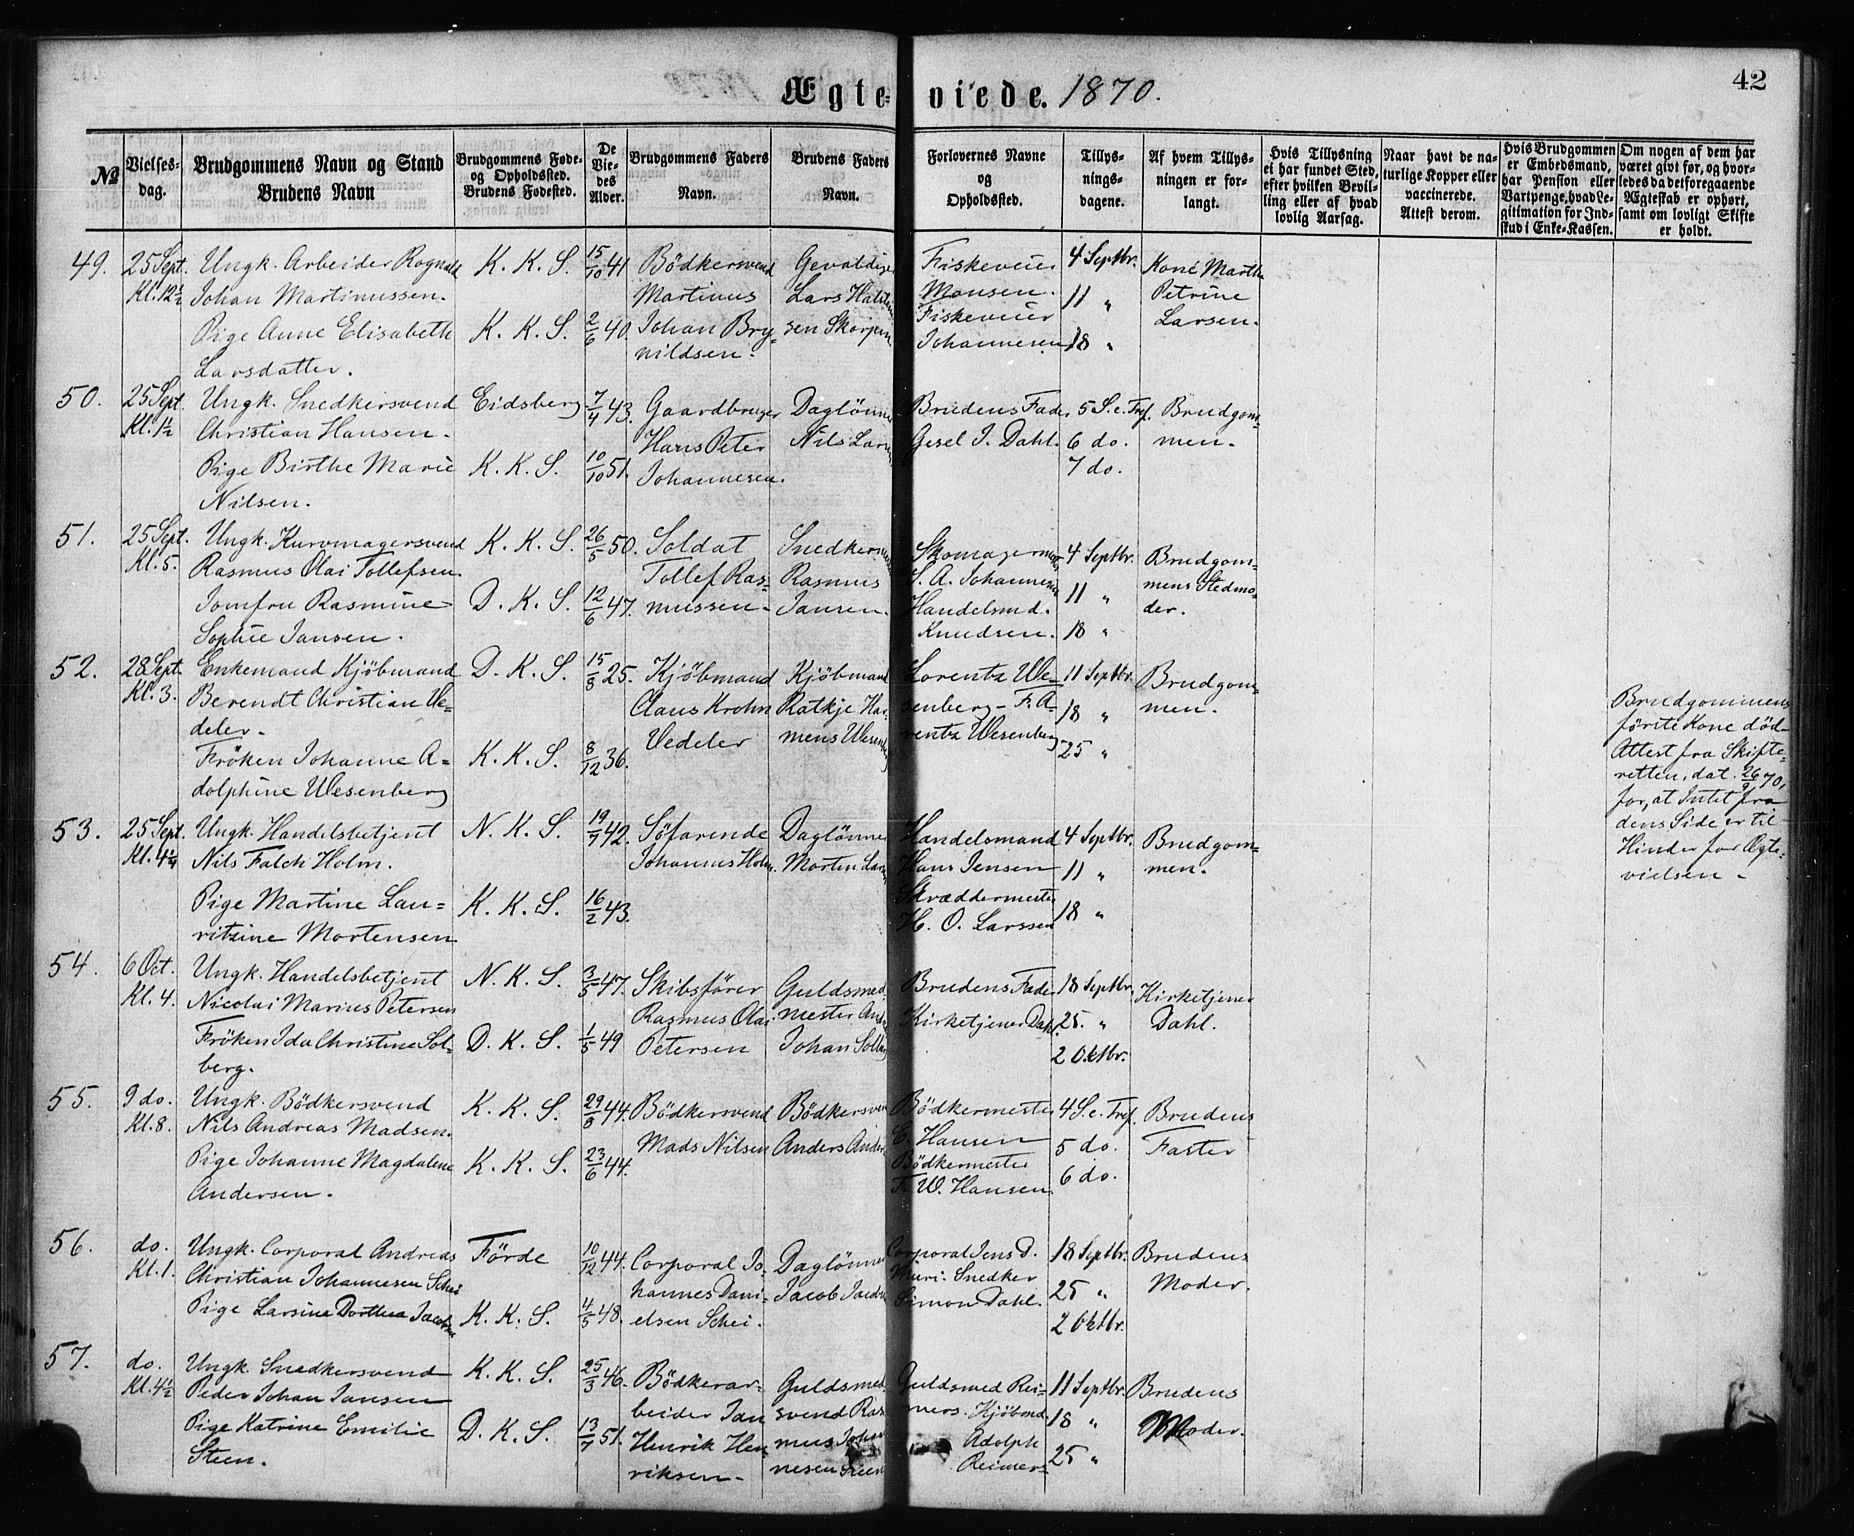 42
Ægteviede. 1870.
№
Vielses-
dag.
Brudgommens Navn og Stand
Brudens Navn
Brudgommens Føde-
og Opholdssted.
Brudens Fødested.
De
Vie-
des
Alder.
Brudgommens Faders
Navn.
Brudens Faders
Navn.
Forlovernes Navne
og
Opholdssted.
Tillys-
nings-
dagene.
Af hvem Tillys-
ningen er for-
langt.
Hvis Tillysning
ei har fundet Sted,
efter hvilken Bevil-
ling eller af hvad
lovlig Aarsag.
Naar havt de na-
turlige Kopper eller
vaccinerede.
Attest derom.
Hvis Brudgommen
er Embedsmand,
har Pension eller
Vartpenge, hvad Le-
gitimation for Ind-
skud i Enke-Kassen.
Om nogen af dem har
været givt før, og hvor-
ledes da det foregaaende
Ægteskab er ophørt,
samt om lovligt Skifte
er holdt.
49.
25 Sept.
Kl. 12½
Ungk. Arbeider Rognald
Johan Martinussen.
Pige Anne Elisabeth
Larsdatter.
K. K. S.
K. K. S.
15/10 41
2/6 40.
Bödkersvend
Martinus
Johan Bry-
nildsen.
Gevaldiger
Lars Halstein
sen Skorpen
Fiskeveier
Monsen.
Fiskeveier
Johannesen
4 Septbr.
11 "
18 "
Kone Marthe
Petrine
Larsen.
50.
25 Sept.
Kl. 1½
Ungk. Snedkersvend
Christian Hansen.
Pige Birthe Marie
Nilsen.
Eidsberg
K. K. S.
7/4 43.
10/10 51.
Gaardbruger
Hans Peter
Johannesen.
Daglönner
Nils Larsen
Brudens Fader
Gesel J. Dahl.
5 S. e. Tref.
6 do.
7 do.
Brudgom-
men.
51.
25 Sept.
Kl. 5.
Ungk. Kurvmagersvend
Rasmus Olai Tollefsen
Jomfru Rasmine
Sophie Jansen.
K. K. S.
D. K. S.
26/5 50.
12/6 47.
Soldat
Tollef Ras-
mussen.
Snedkermester
Rasmus
Jansen.
Skomagermester
S. A. Johannesen
Handelsmd.
Knudsen.
4 Septbr.
11 "
18 "
Brudgom-
mens Stedmo-
der.
52.
28 Sept.
Kl. 3.
Enkemand Kjöbmand
Berendt Christian Ve-
deler.
Fröken Johanne A-
dolphine Wesenberg
D. K. S.
K. K. S.
15/8 25.
8/12 36.
Kjöbmand
Claus Krohn
Vedeler
Kjöbmand
Ratkje Har-
mens Wesenberg
Lorentz We-
senberg - F. A-
rentz Wesenberg
11 Septbr.
18 "
25 "
Brudgom-
men.
Brudgommens
förste Kone död.
Attest fra Skifte-
retten, dat. 26/9 70,
for, at Intet fra
dens Side er til
Hinder for Ægte-
vielsen.
53.
25 Sept.
Kl. 4¼
Ungk. Handelsbetjent
Nils Falch Holm.
Pige Martine Lau-
ritzine Mortensen
N. K. S.
K. K. S.
19/7 42.
16/2 43.
Söfarende
Johannes Holm.
Daglönner
Morten Larsen
Handelsmand
Hans Jensen
Skræddermester
H. O. Larssen
4 Septbr.
11 "
18 "
Brudgom-
men.
54.
6 Oct.
Kl. 4.
Ungk. Handelsbetjent
Nicolai Marius Petersen
Fröken Ida Christine Sol-
berg.
N. K. S.
D. K. S.
3/5 47.
1/5 49
Skibsförer
Rasmus Olai
Petersen
Guldsmed
mester
Johan Solberg
Brudens Fader
Kirketjener Dahl.
18 Septbr.
25. "
2 Oktbr.
Kirketjener
Dahl.
55.
9 do.
Kl. 8.
Ungk. Bödkersvend
Nils Andreas Madsen.
Pige Johanne Magdalene
Andersen.
K. K. S.
K. K. S.
29/8 44.
23/6 44.
Bödkersvend
Mads Nilsen
Bödkersvend
Anders Andersen
Bödkermester
E. Hansen
Bödkermester
F. W. Hansen
4 S. e. Tref.
5 do.
6 do.
Brudens
Faster
56.
do.
Kl. 1.
Ungk. Corporal Andreas
Christian Johannesen Schei
Pige Larsine Dorthea Jacobsen
Förde
K. K. S.
10/12 44.
4/5 48.
Corporal Jo-
hannes Dani-
elsen Schei.
Daglönner
Jacob Jacobsen
Corporal Jens D.
Snedker
Simon Dahl.
18 Septbr.
25 "
2 Oktbr.
Brudens
Moder.
57.
do.
Kl. 4½
Ungk. Snedkersvend
Peder Johan Jansen
Pige Katrine Emilie
Steen.
K. K. S.
D. K. S.
25/3 46.
13/7 51.
Bödkerar-
beider Jan
Henrik Hen-
riksen.
Guldsmed
svend Ras
mus Johan
nesen Steen
Guldsmed Rei-
mers. Kjöbmd.
Adolph
Reimers
11 Septbr.
18 "
25 "
Brudens
Moder.